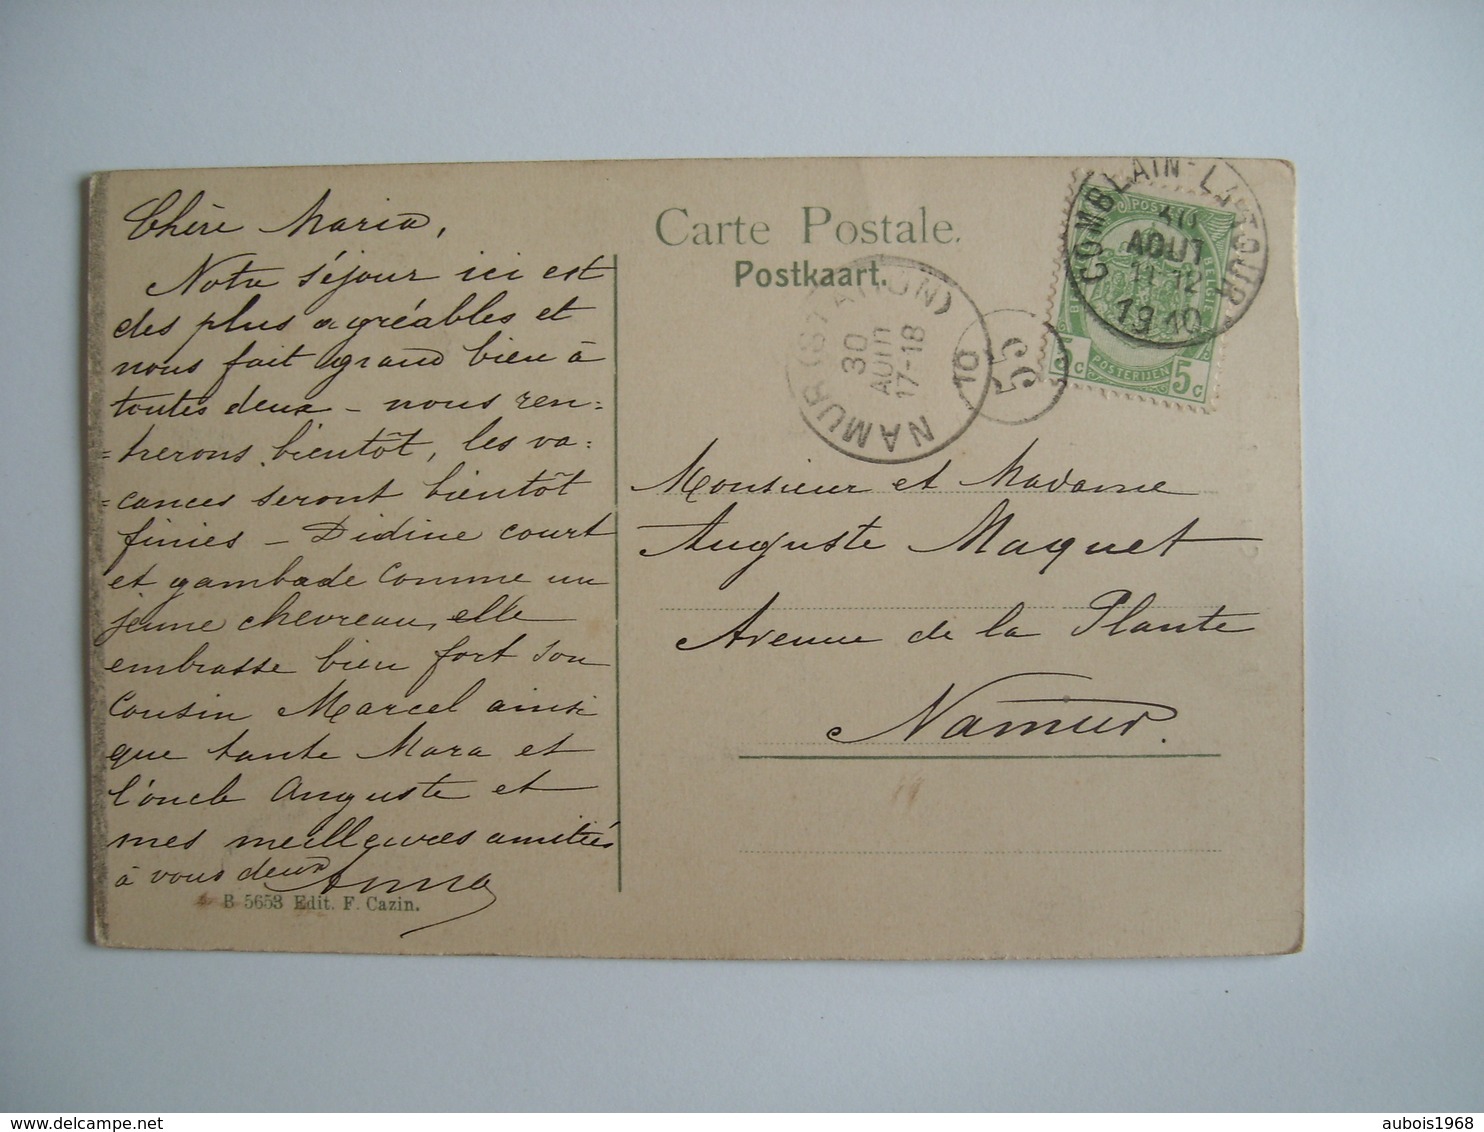 Chère Maria,
Notre séjour ici est
des plus agréables et
nous fait grand bien à
toutes deux – nous ren=
=trerons bientôt, les va=
=cances seront bientôt
finies – Didine court
et gambade comme un
jeune chevreau, elle
embrasse bien fort son
Cousin Marcel ainsi
que tante Mara et
l'oncle Auguste et
mes meilleures amitiés
à vous deux Anna
B 5653 Edit. F. Cazin.
Carte Postale.
Postkaart.
COMBLAIN-LA-TOUR
AOUT
11-12
1910
POSTES
BELGIQUE
POSTERIJEN
5c 5c
NAMUR (STATION)
30
AOUT
17-18
10
55
Monsieur et Madame
Auguste Maquet
Avenue de la Plante
Namur.
aubois1968